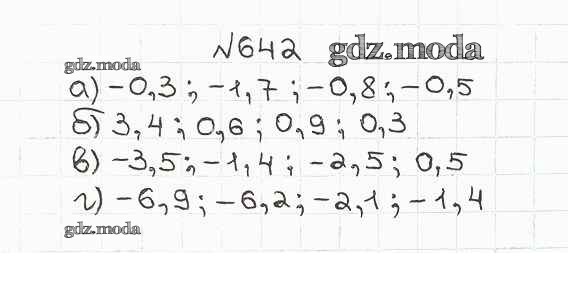 №642 gdz.moda
gdz.moda
а) -0,3; -1,7; -0,8; -0,5
б) 3,4; 0,6; 0,9; 0,3
в) -3,5; -1,4; -2,5; 0,5
г) -6,9; -6,2; -2,1; -1,4
gdz.moda